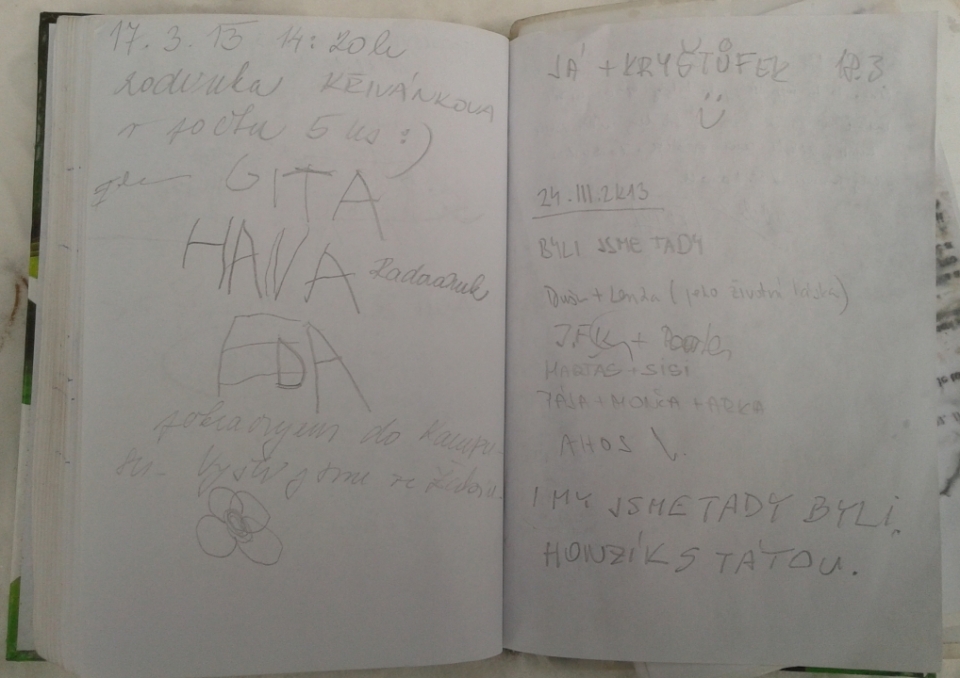 17. 3. 13 14:20h
rodinka KŘIVÁNKOVA
v počtu 5 ks :)
GITA
HANA
EDA
pokračujem do
jsme ze
JÁ + KRYŠTŮFEK 17.3
24.III.2K13
BYLI JSME TADY
+ Lenža (jeho životní láska)
+
MARŤAS + SISI
TÁJA + MONČA + ARKA
AHOJ
I MY JSME TADY BYLI,
HONZÍK S TÁTOU.